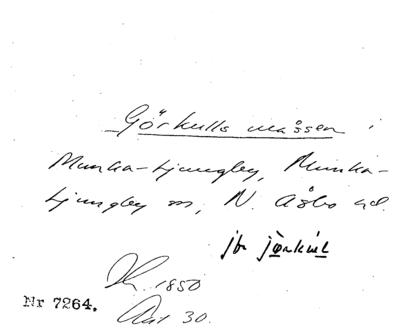 Görkulls måssen i
Munka-Ljungby, Munka-
Ljungby sn, N. Åsbo hd.
jfr
1850
Nr 7264. Akt 30.